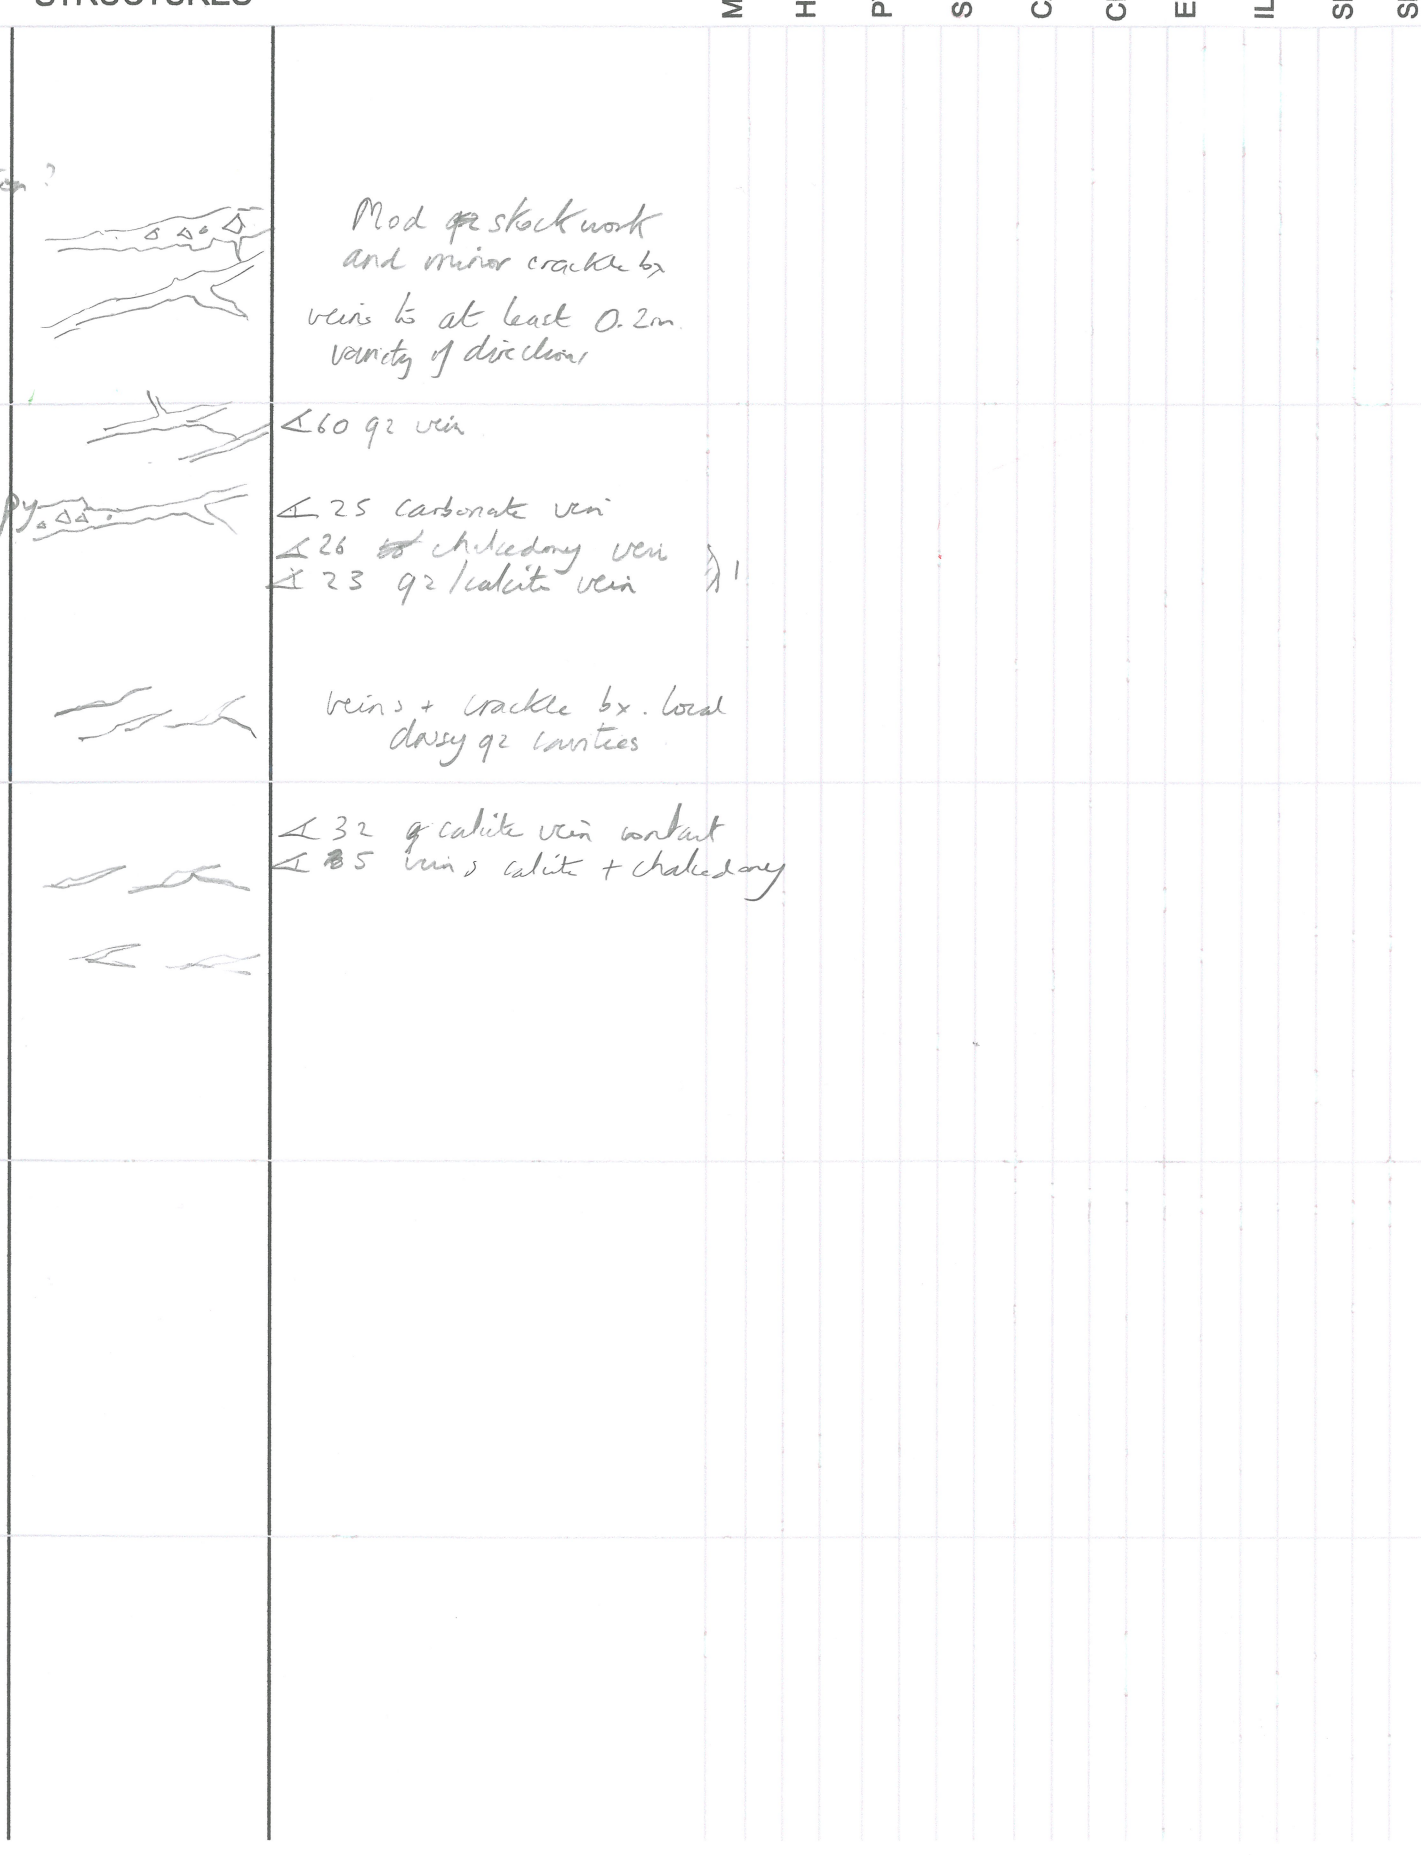 STRUCTURES
M H P S C C E IL S S
?
Mod qz stockwork
and minor crackle bx
veins to at least 0.2m
variety of directions
∡60 qz vein
py
∡ 25 carbonate vein
∡ 26 chalcedony vein
∡ 23 qz/calcite vein
1
veins + crackle bx. local
drusy qz cavities
∡ 32 calcite vein contact
∡ 5 veins calcite + chalcedony